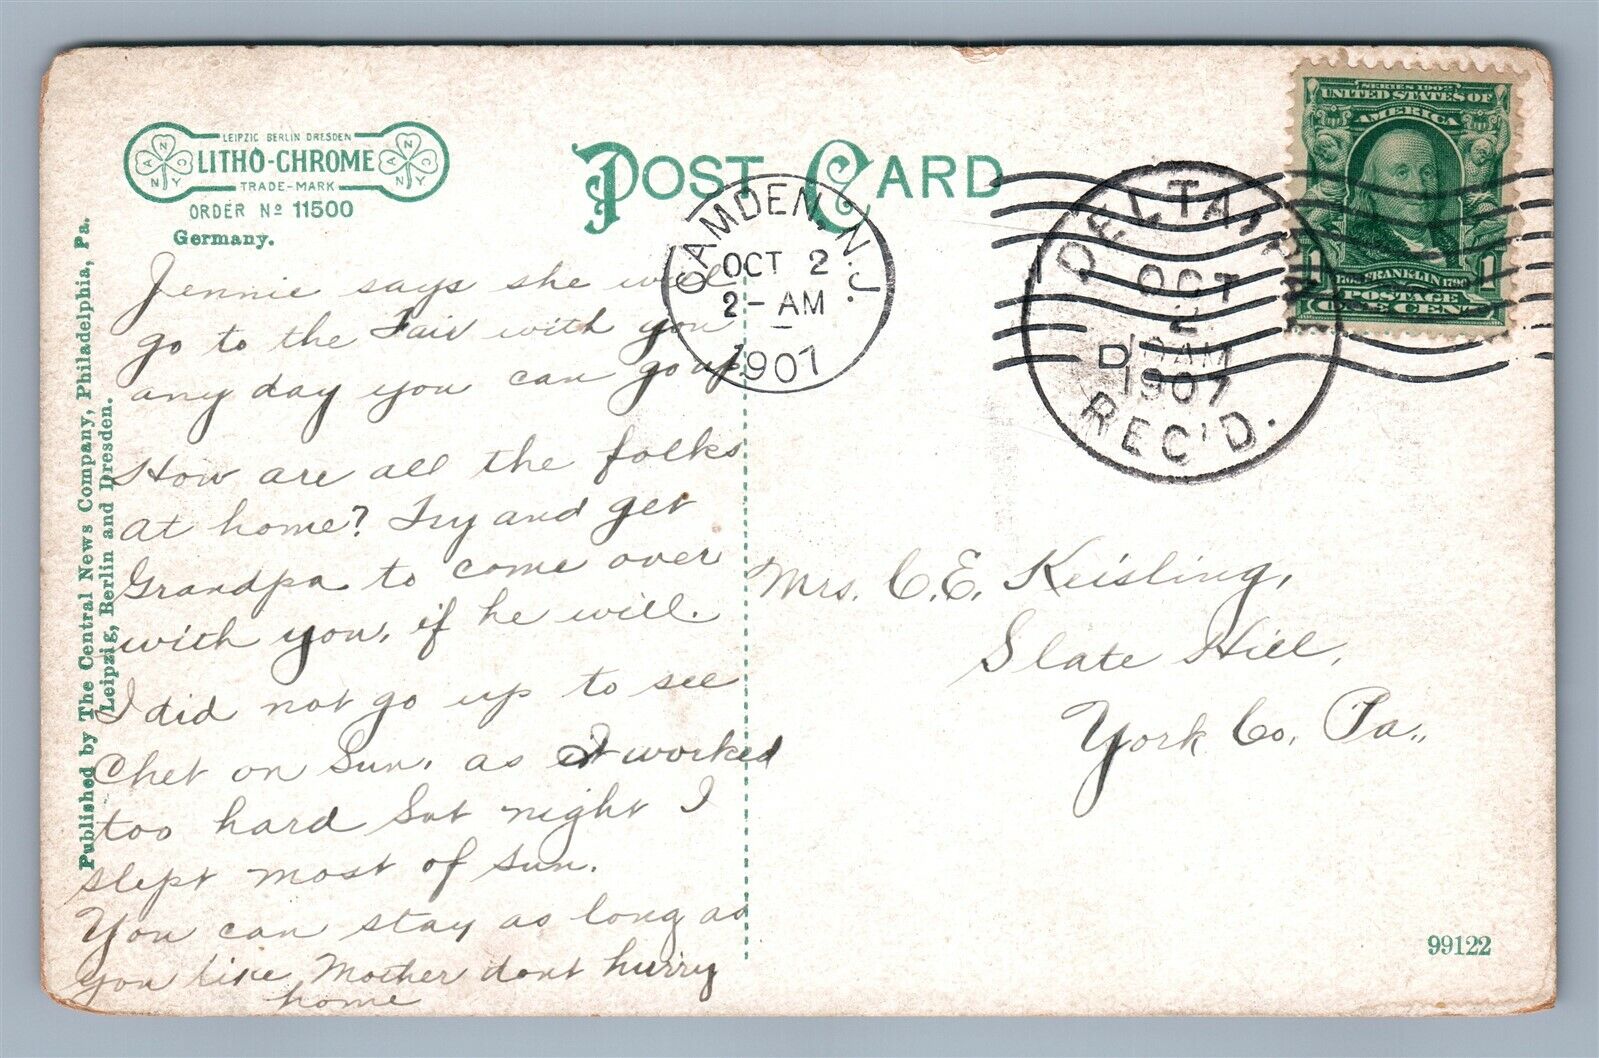 LEIPZIG BERLIN DRESDEN
LITHO-CHROME
TRADE-MARK
A N C N Y
A N C N Y
ORDER No 11500
Germany.
POST CARD
CAMDEN, N.J.
OCT 2
2-AM
1907
DELTA, PA.
OCT
2
D 10AM
1907
REC'D.
SERIES 1902
UNITED STATES OF
AMERICA
1706 FRANKLIN 1790
1 1
POSTAGE
ONE CENT
Published by The Central News Company, Philadelphia, Pa.
Leipzig, Berlin and Dresden.
Jennie says she will
go to the Fair with you
any day you can go up.
How are all the folks
at home? Try and get
Grandpa to come over
with you, if he will.
I did not go up to see
Chet on Sun. as I worked
too hard Sat night I
slept most of Sun.
You can stay as long as
you like Mother dont hurry
home
Mrs. C. E. Keisling,
Slate Hill,
York Co. Pa.,
99122